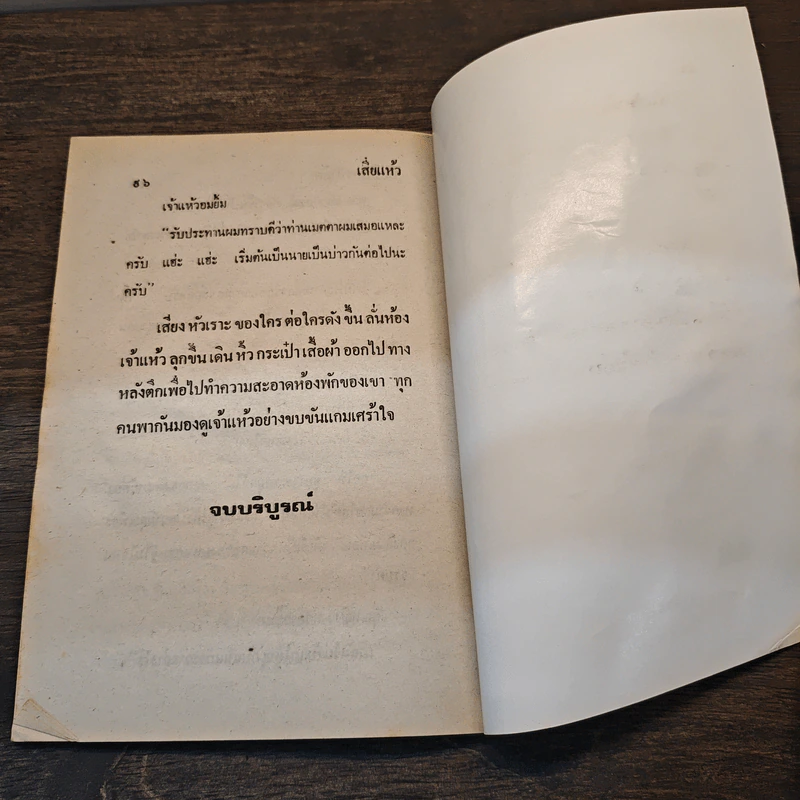 ๙๖ เสี่ยแห้ว
เจ้าแห้วอมยิ้ม
"รับประทานผมทราบดีว่าท่านเมตตาผมเสมอแหละ
ครับ แฮ่ะ แฮ่ะ เริ่มต้นเป็นนายเป็นบ่าวกันต่อไปนะ
ครับ"
เสียง หัวเราะ ของใคร ต่อใครดัง ขึ้น ลั่นห้อง
เจ้าแห้ว ลุกขึ้น เดิน หิ้ว กระเป๋า เสื้อผ้า ออกไป ทาง
หลังตึกเพื่อไปทำความสะอาดห้องพักของเขา ทุก
คนพากันมองดูเจ้าแห้วอย่างขบขันแกมเศร้าใจ
จบบริบูรณ์